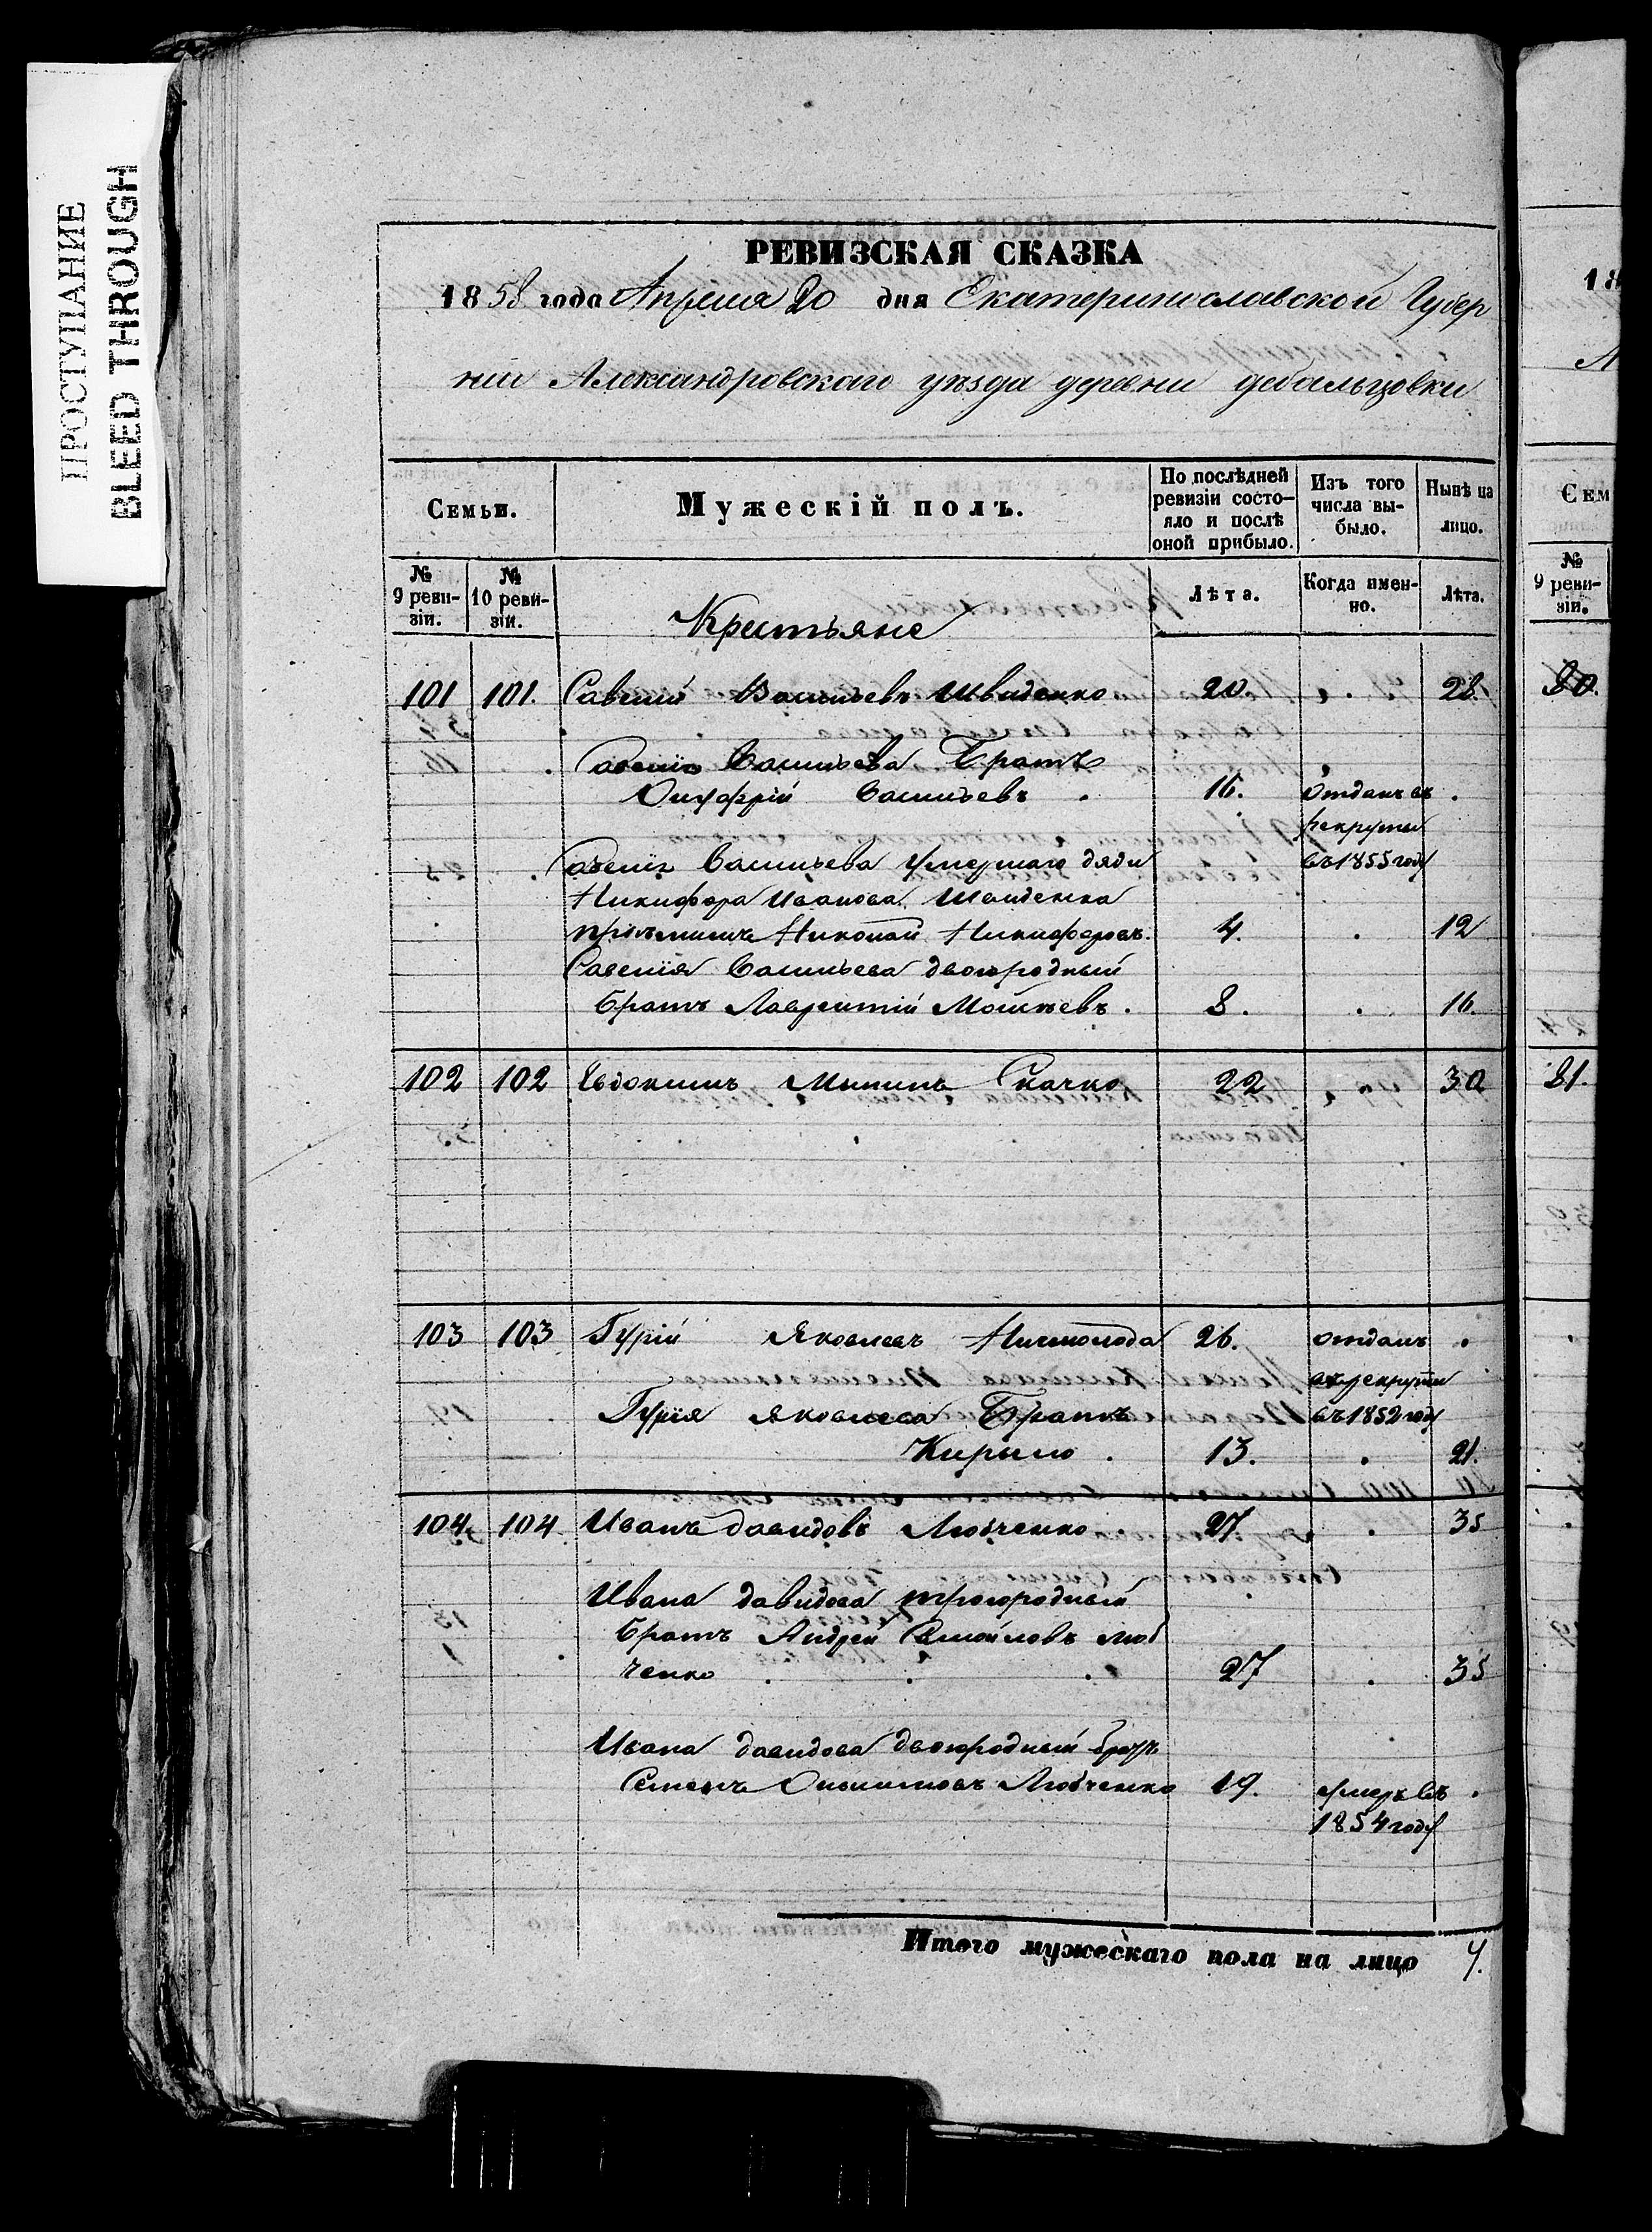 ПРОСТУПАНИЕ
BLEED THROUGH
РЕВИЗСКАЯ СКАЗКА
1858 года Апреля 20 дня Екатеринославской Губер
ніи Александровскаго уѣзда деревни дебальцовки
Семьи.
Мужескій полъ.
По послѣдней ревизіи состо-
яло и послѣ
оной прибыло.
Изъ того
числа вы-
было.
Нынѣ на
лицо.
№
9 реви-
зіи.
№
10 реви-
зіи.
Крестьяне
Лѣта.
Когда имен-
но.
Лѣта.
101 101. Савелій Васильевъ Швиденко 20. 28.
Савелія Васильева Братъ
Онуфрій Васильевъ . 16. Отданъ въ .
рекруты
въ 1855 году
Савелія Васильева умершаго дяди
Никифора Иванова Швиденка
Николай Никифоровъ. 4. . 12
Савелія Васильева двоюродный
братъ Лаврентій Мойсѣевъ . 8. . 16.
102 102 Евдокимъ Мининъ Скачко 22 30
103 103 Гурій Яковлевъ 26. отданъ .
въ рекруты
въ 1852 году
Гурія Яковлева Братъ
Кирыло . 13. . 21.
104. 104. Иванъ давидовъ Любченко . 27 . 35
Ивана давидова троюродный
братъ Андрей Самойловъ Люб
ченко . . . 27 . 35
Ивана давидова двоюродный братъ
Семенъ Любченко 19. умеръ въ .
1854 году
Итого мужескаго пола на лицо 7.
18
Сем
№
9 реви-
зіи.
80.
81.